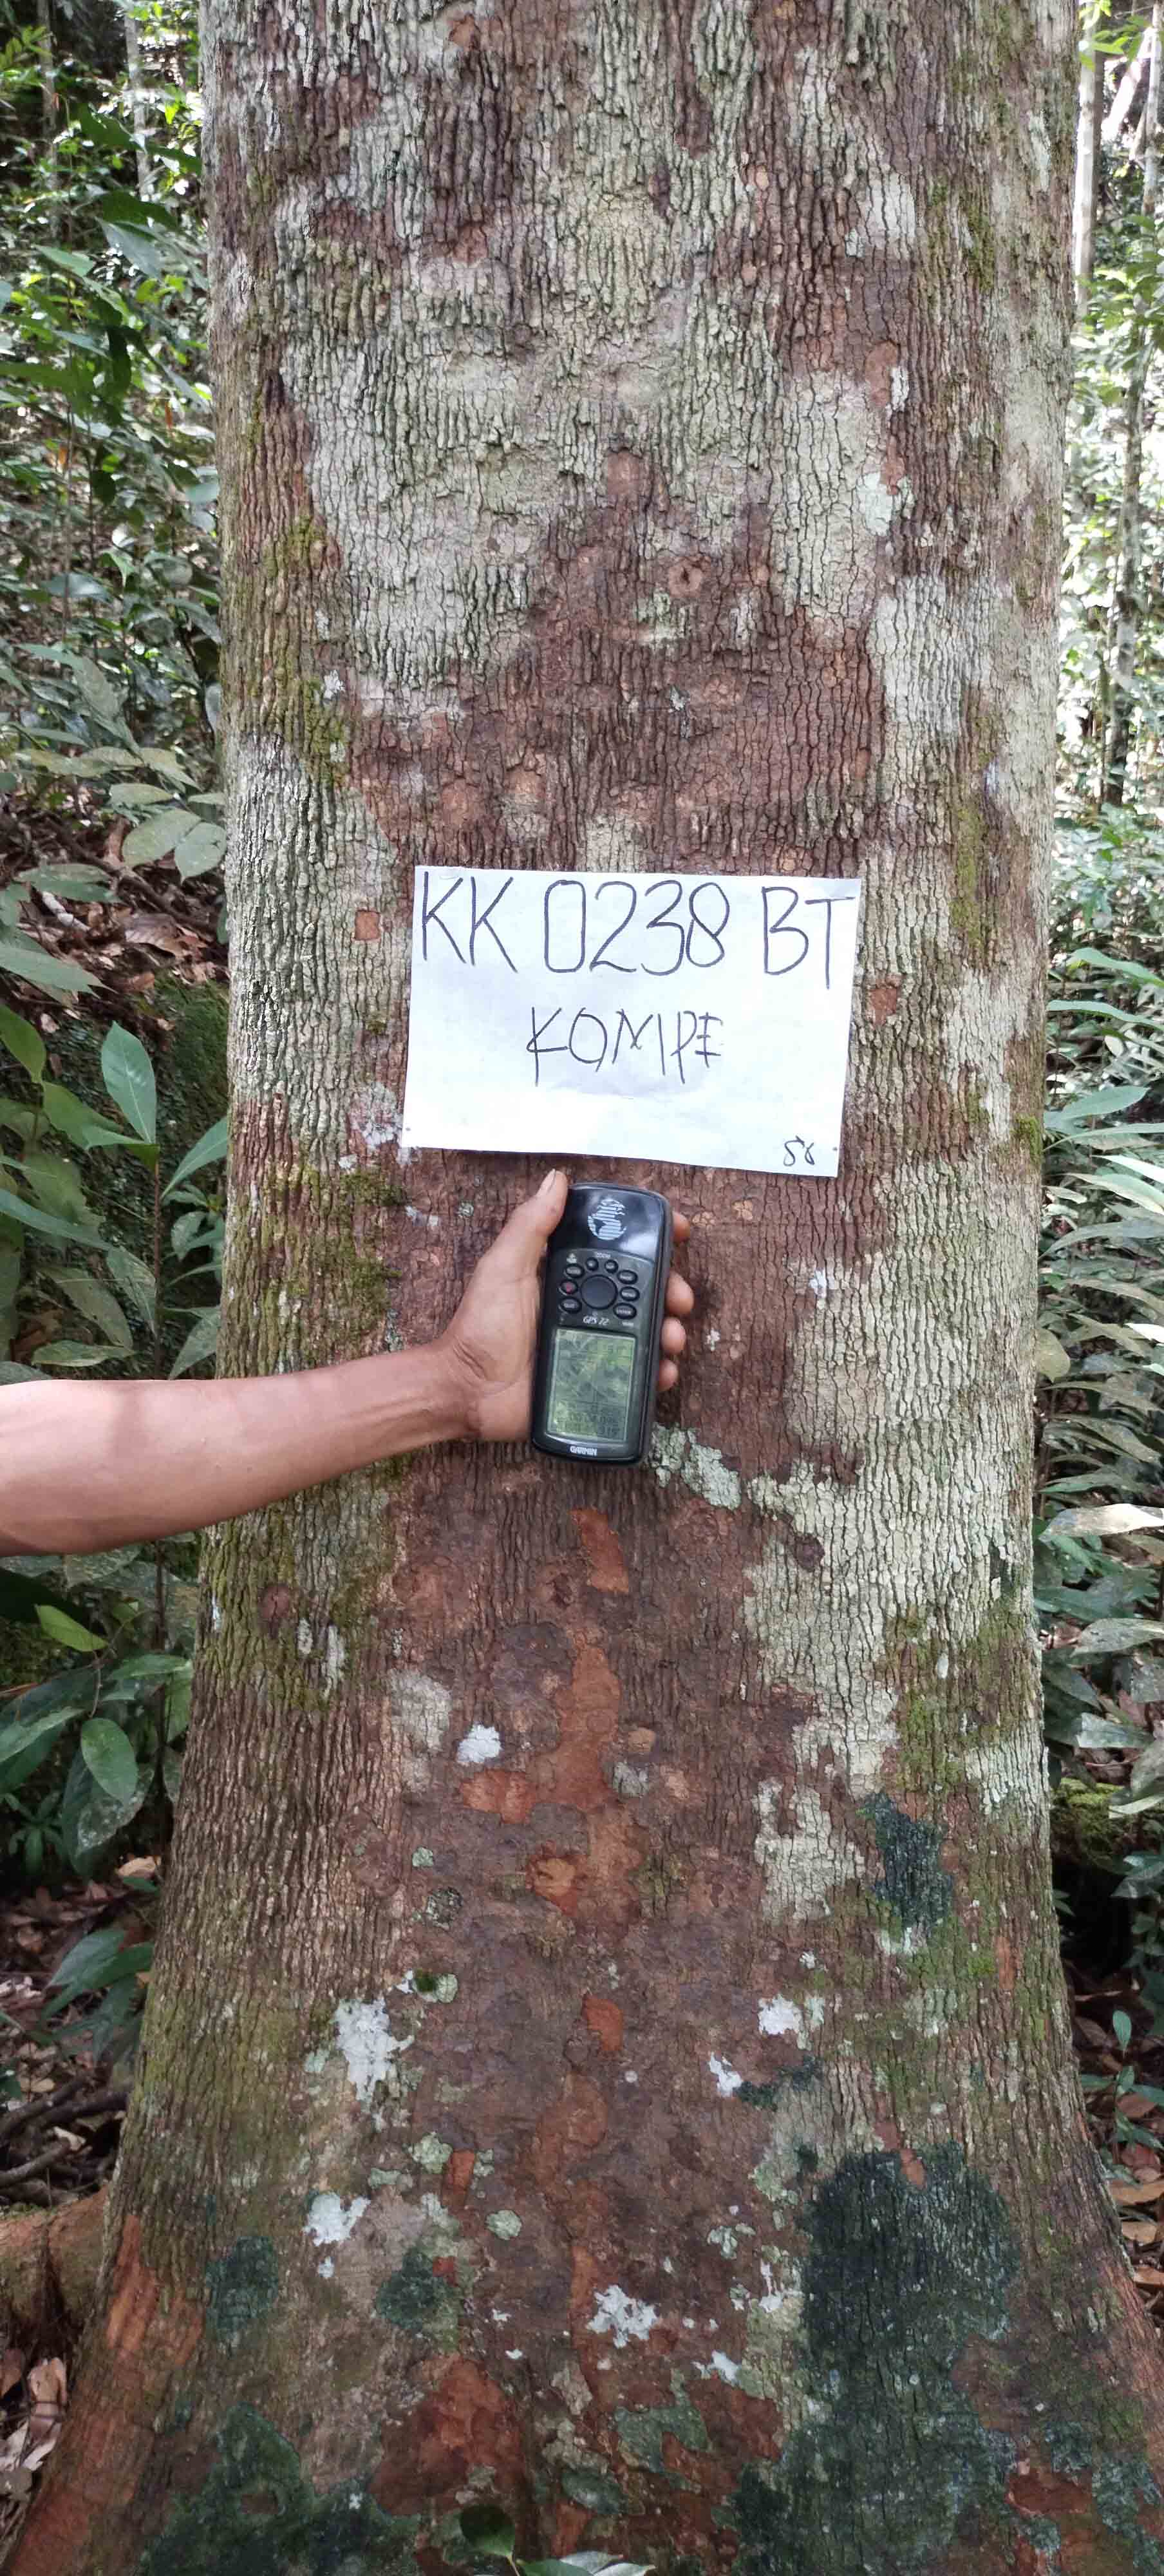 KK 0238 BT
KOMPE
58
GPS 72
GARMIN